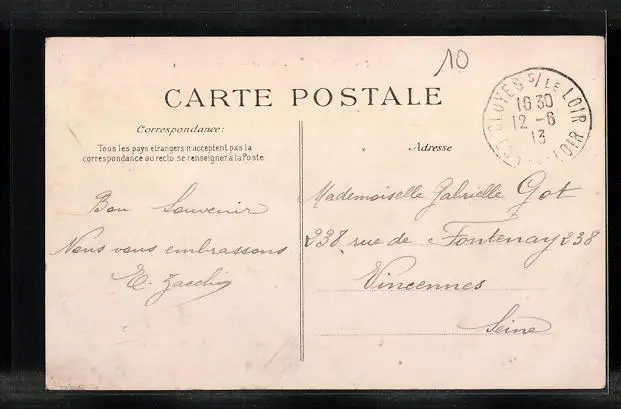 10
CARTE POSTALE
CLOYES S/ LE LOIR
16 30
12 - 6
13
LOIR
Correspondance:
Tous les pays étrangers n'acceptent pas la
correspondance au recto, se renseigner à la Poste
Adresse
Bon Souvenir
Nous vous embrassons
E.
Mademoiselle Gabrielle Got
238 rue de Fontenay 238
Vincennes
Seine